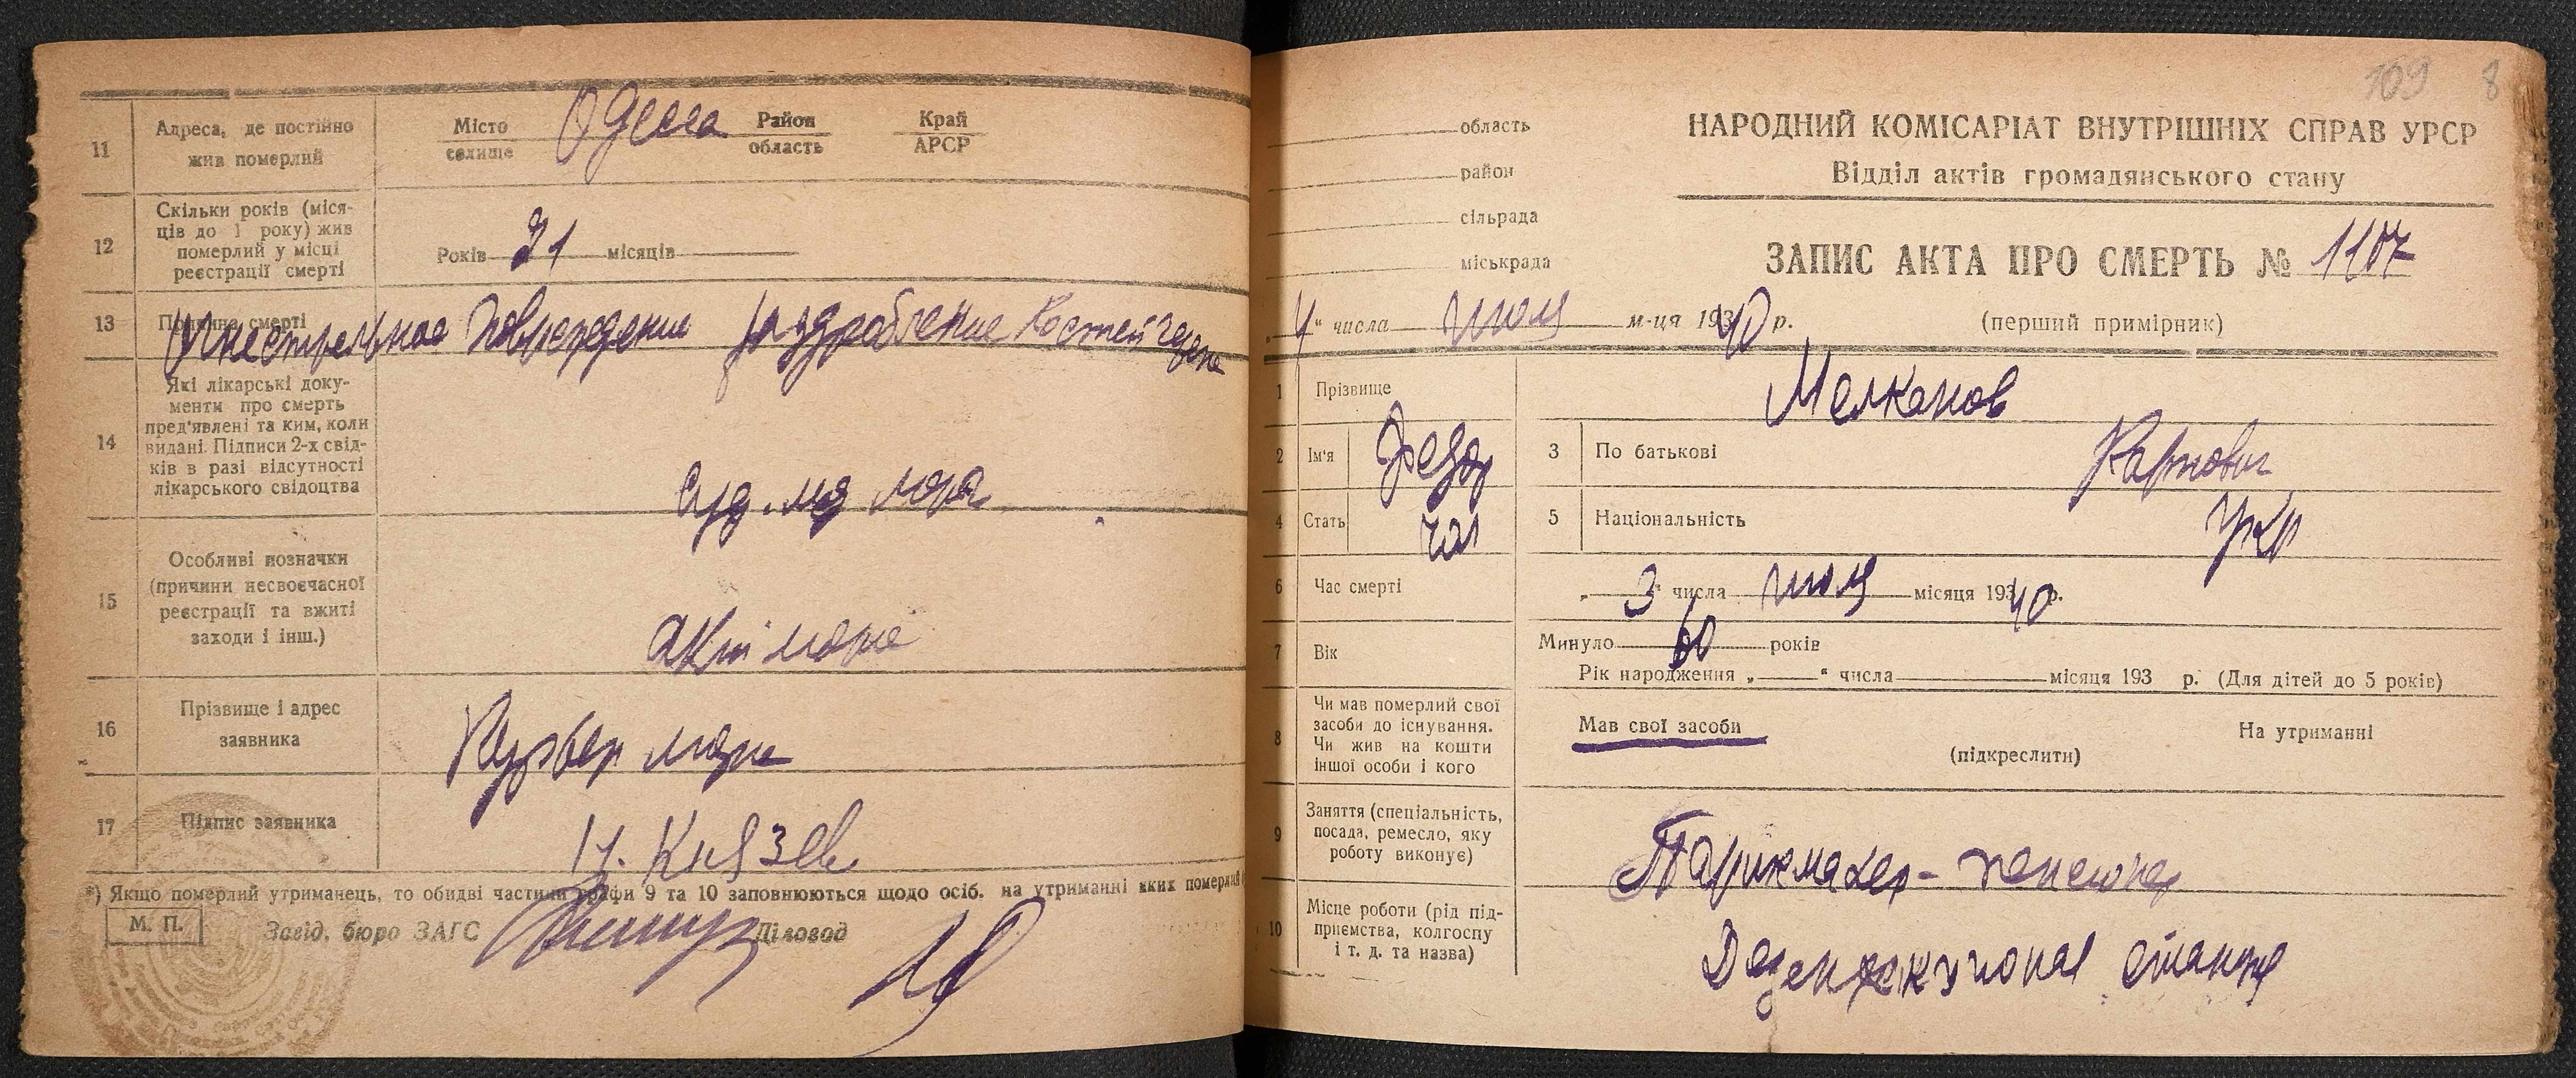 11
Адреса, де постійно
жив померлий
Місто
селище
Одесса
Район
область
Край
АРСР
12
Скільки років (міся-
ців до 1 року) жив
померлий у місці
реєстрації смерті
Років 21 місяців
13
Причина смерті
Огнестрельное повреждение раздробление костей черепа
14
Які лікарські доку-
менти про смерть
пред'явлені та ким, коли
видані. Підписи 2-х свід-
ків в разі відсутності
лікарського свідоцтва
Суд. мед морга
15
Особливі позначки
(причини несвоєчасної
реєстрації та вжиті
заходи і інш.)
16
Прізвище і адрес
заявника
Курьер морга
17
Підпис заявника
Князев
*) Якщо померлий утриманець, то обидві частини графи 9 та 10 заповнюються щодо осіб. на утриманні яких померлий
М. П.
Завід. бюро ЗАГС
Діловод
109 8
область
район
сільрада
міськрада
НАРОДНИЙ КОМІСАРІАТ ВНУТРІШНІХ СПРАВ УРСР
Відділ актів громадянського стану
ЗАПИС АКТА ПРО СМЕРТЬ № 1107
„4" числа июля м-ця 1940 р.
(перший примірник)
1
Прізвище
Мелканов
2
Ім'я
Федор
3
По батькові
Карпович
4
Стать
чол
5
Національність
Укр
6
Час смерті
„3" числа июля місяця 1940 р.
7
Вік
Минуло 60 років
Рік народження „ " числа місяця 193 р. (Для дітей до 5 років)
8
Чи мав померлий свої
засоби до існування.
Чи жив на кошти
іншої особи і кого
Мав свої засоби
На утриманні
(підкреслити)
9
Заняття (спеціальність,
посада, ремесло, яку
роботу виконує)
Парикмахер - пенсионер
10
Місце роботи (рід під-
приємства, колгоспу
і т. д. та назва)
Дезенфекционая станция